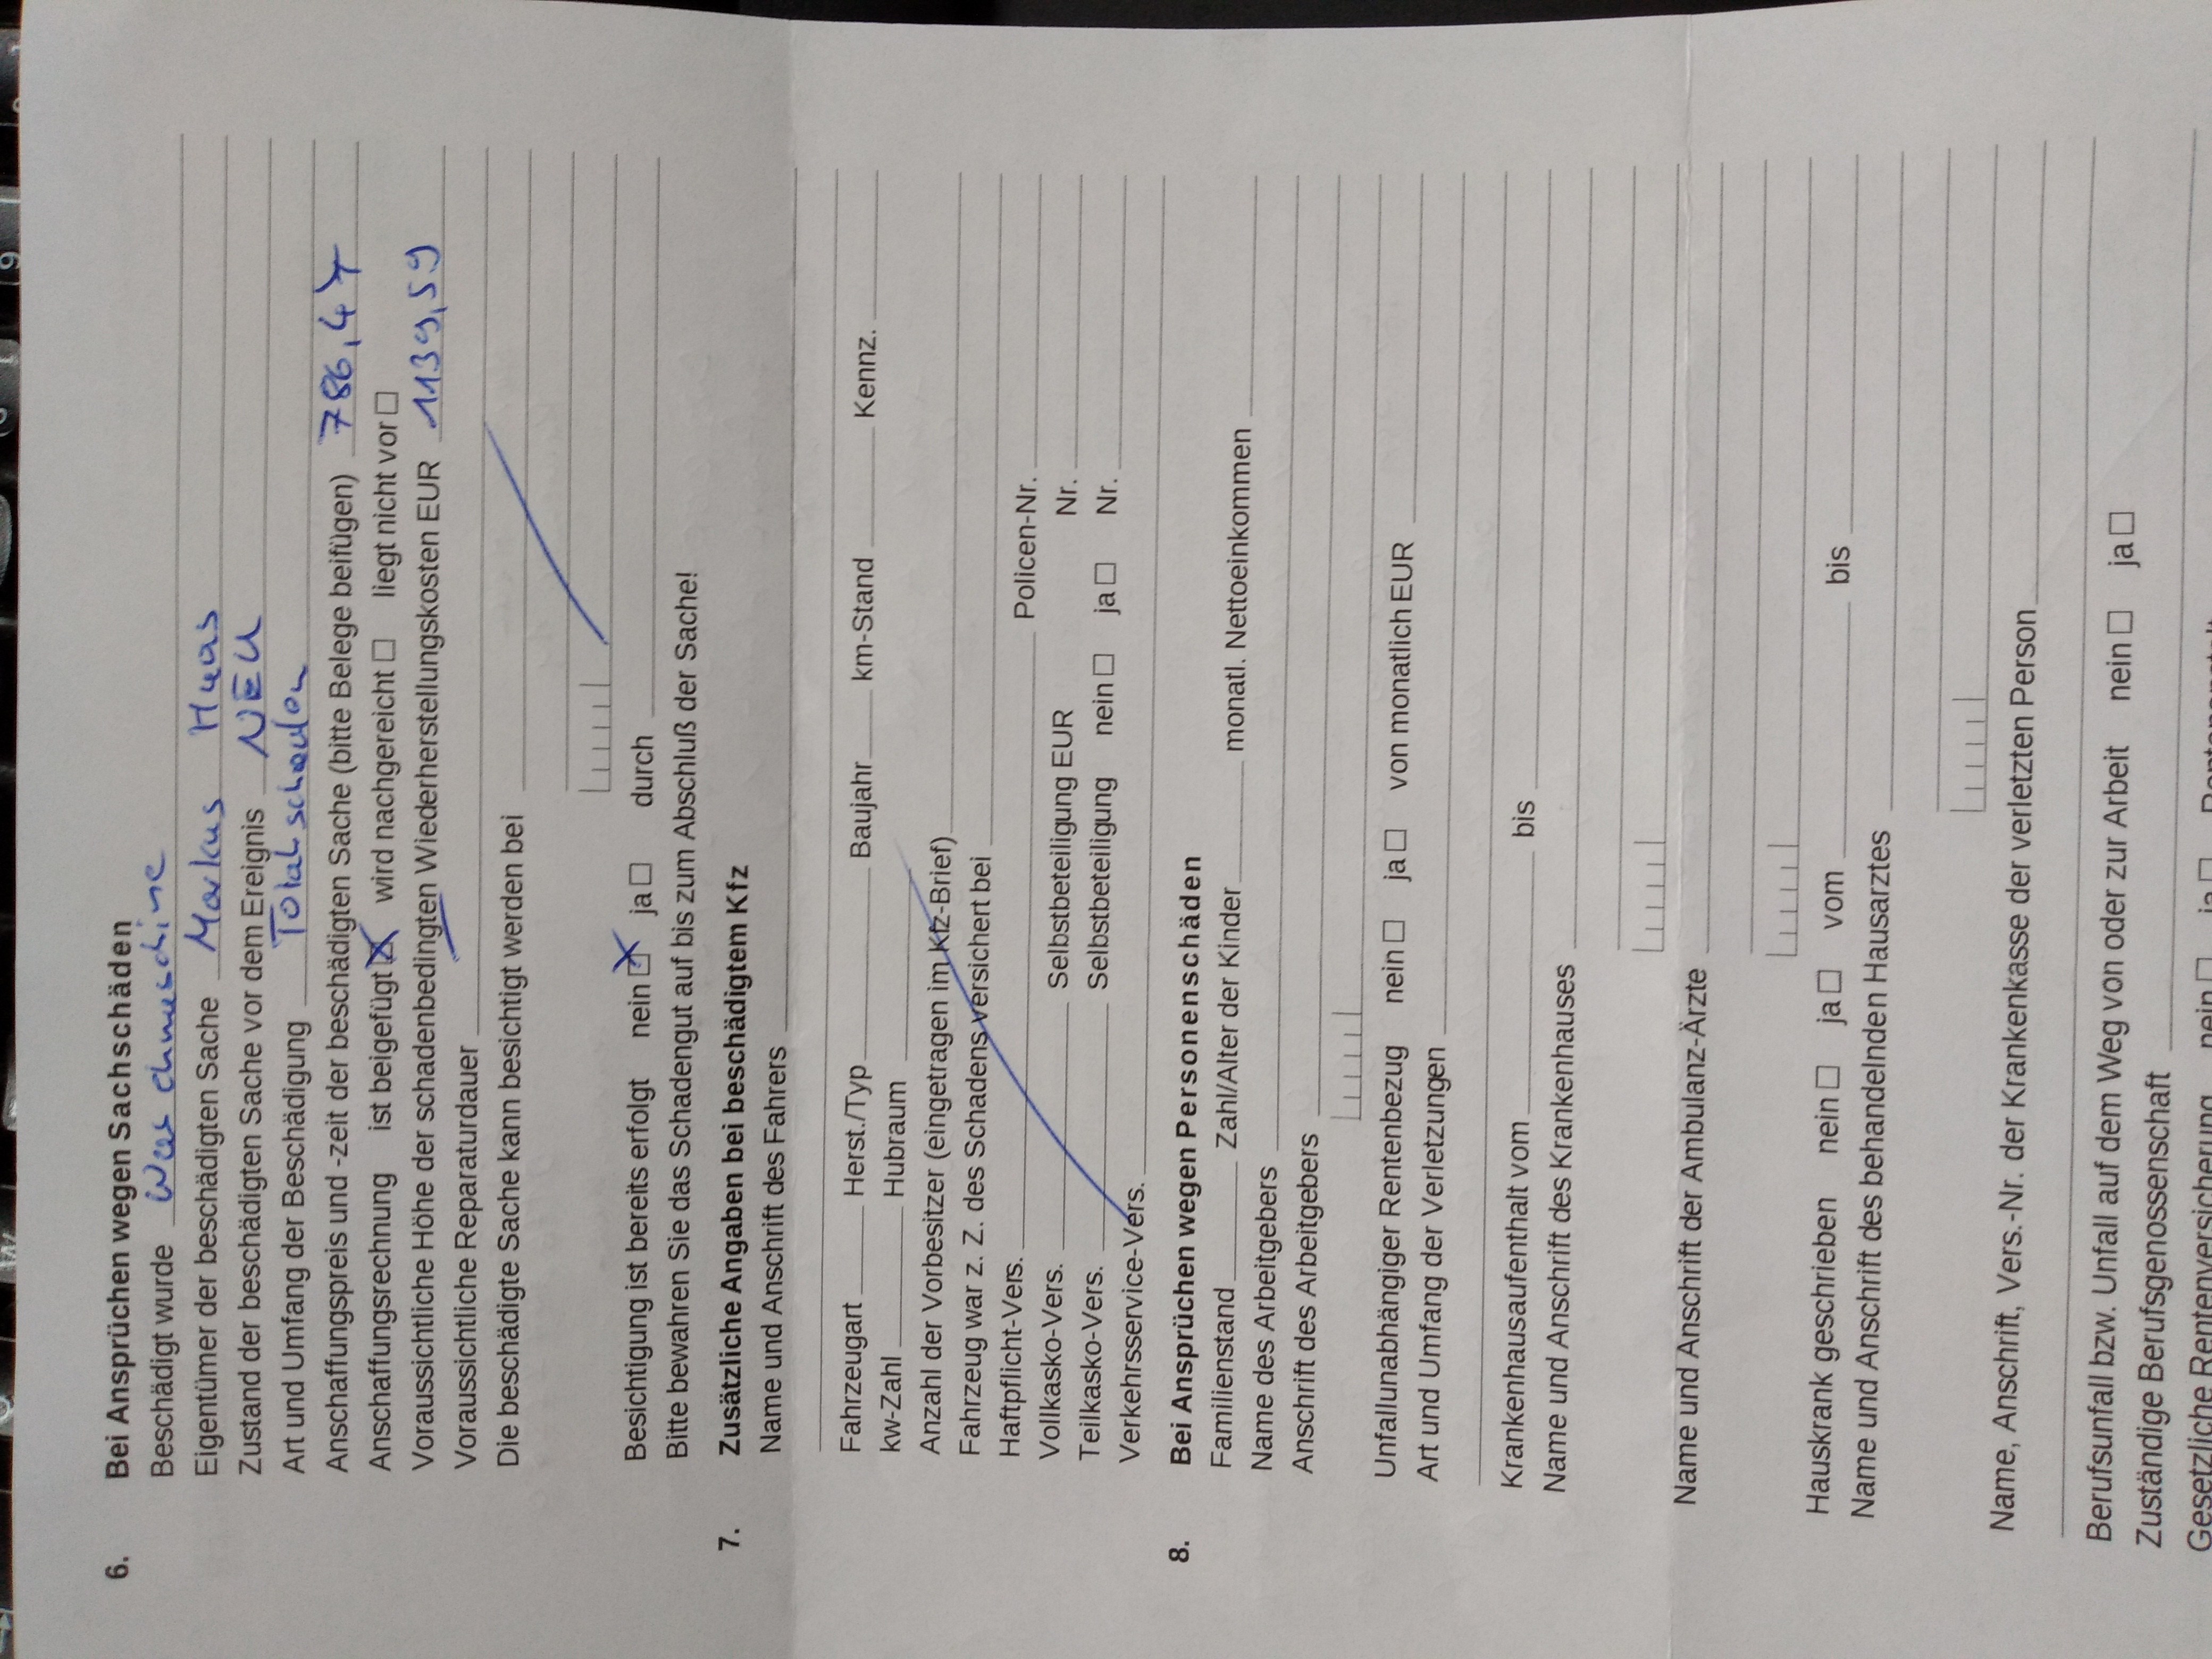 6. Bei Ansprüchen wegen Sachschäden
Beschädigt wurde Waschmaschine
Eigentümer der beschädigten Sache Markus Haas
Zustand der beschädigten Sache vor dem Ereignis NEU
Art und Umfang der Beschädigung Totalschaden
Anschaffungspreis und -zeit der beschädigten Sache (bitte Belege beifügen) 786,47
Anschaffungsrechnung ist beigefügt ☒ wird nachgereicht ☐ liegt nicht vor ☐
Voraussichtliche Höhe der schadenbedingten Wiederherstellungskosten EUR 1139,59
Voraussichtliche Reparaturdauer
Die beschädigte Sache kann besichtigt werden bei
Besichtigung ist bereits erfolgt nein ☒ ja ☐ durch
Bitte bewahren Sie das Schadengut auf bis zum Abschluß der Sache!
7. Zusätzliche Angaben bei beschädigtem Kfz
Name und Anschrift des Fahrers
Fahrzeugart Herst./Typ Baujahr km-Stand Kennz.
kw-Zahl Hubraum
Anzahl der Vorbesitzer (eingetragen im Kfz-Brief)
Fahrzeug war z. Z. des Schadens versichert bei
Haftpflicht-Vers. Policen-Nr.
Vollkasko-Vers. Selbstbeteiligung EUR Nr.
Teilkasko-Vers. Selbstbeteiligung nein ☐ ja ☐ Nr.
Verkehrsservice-Vers.
8. Bei Ansprüchen wegen Personenschäden
Familienstand Zahl/Alter der Kinder monatl. Nettoeinkommen
Name des Arbeitgebers
Anschrift des Arbeitgebers
Unfallunabhängiger Rentenbezug nein ☐ ja ☐ von monatlich EUR
Art und Umfang der Verletzungen
Krankenhausaufenthalt vom bis
Name und Anschrift des Krankenhauses
Name und Anschrift der Ambulanz-Ärzte
Hauskrank geschrieben nein ☐ ja ☐ vom bis
Name und Anschrift des behandelnden Hausarztes
Name, Anschrift, Vers.-Nr. der Krankenkasse der verletzten Person
Berufsunfall bzw. Unfall auf dem Weg von oder zur Arbeit nein ☐ ja ☐
Zuständige Berufsgenossenschaft
Gesetzliche Rentenversicherung nein ☐ ja ☐